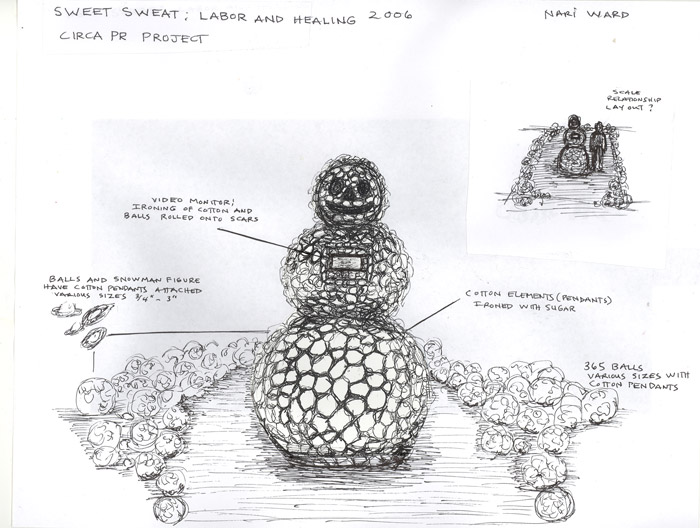 SWEET SWEAT; LABOR AND HEALING 2006
NARI WARD
CIRCA PR PROJECT
SCALE
RELATIONSHIP
LAY OUT?
VIDEO MONITOR;
IRONING OF COTTON AND
BALLS ROLLED ONTO SCARS
BALLS AND SNOWMAN FIGURE
HAVE COTTON PENDANTS ATTACHED
VARIOUS SIZES 3/4" - 3"
COTTON ELEMENTS (PENDANTS)
IRONED WITH SUGAR
365 BALLS
VARIOUS SIZES WITH
COTTON PENDANTS